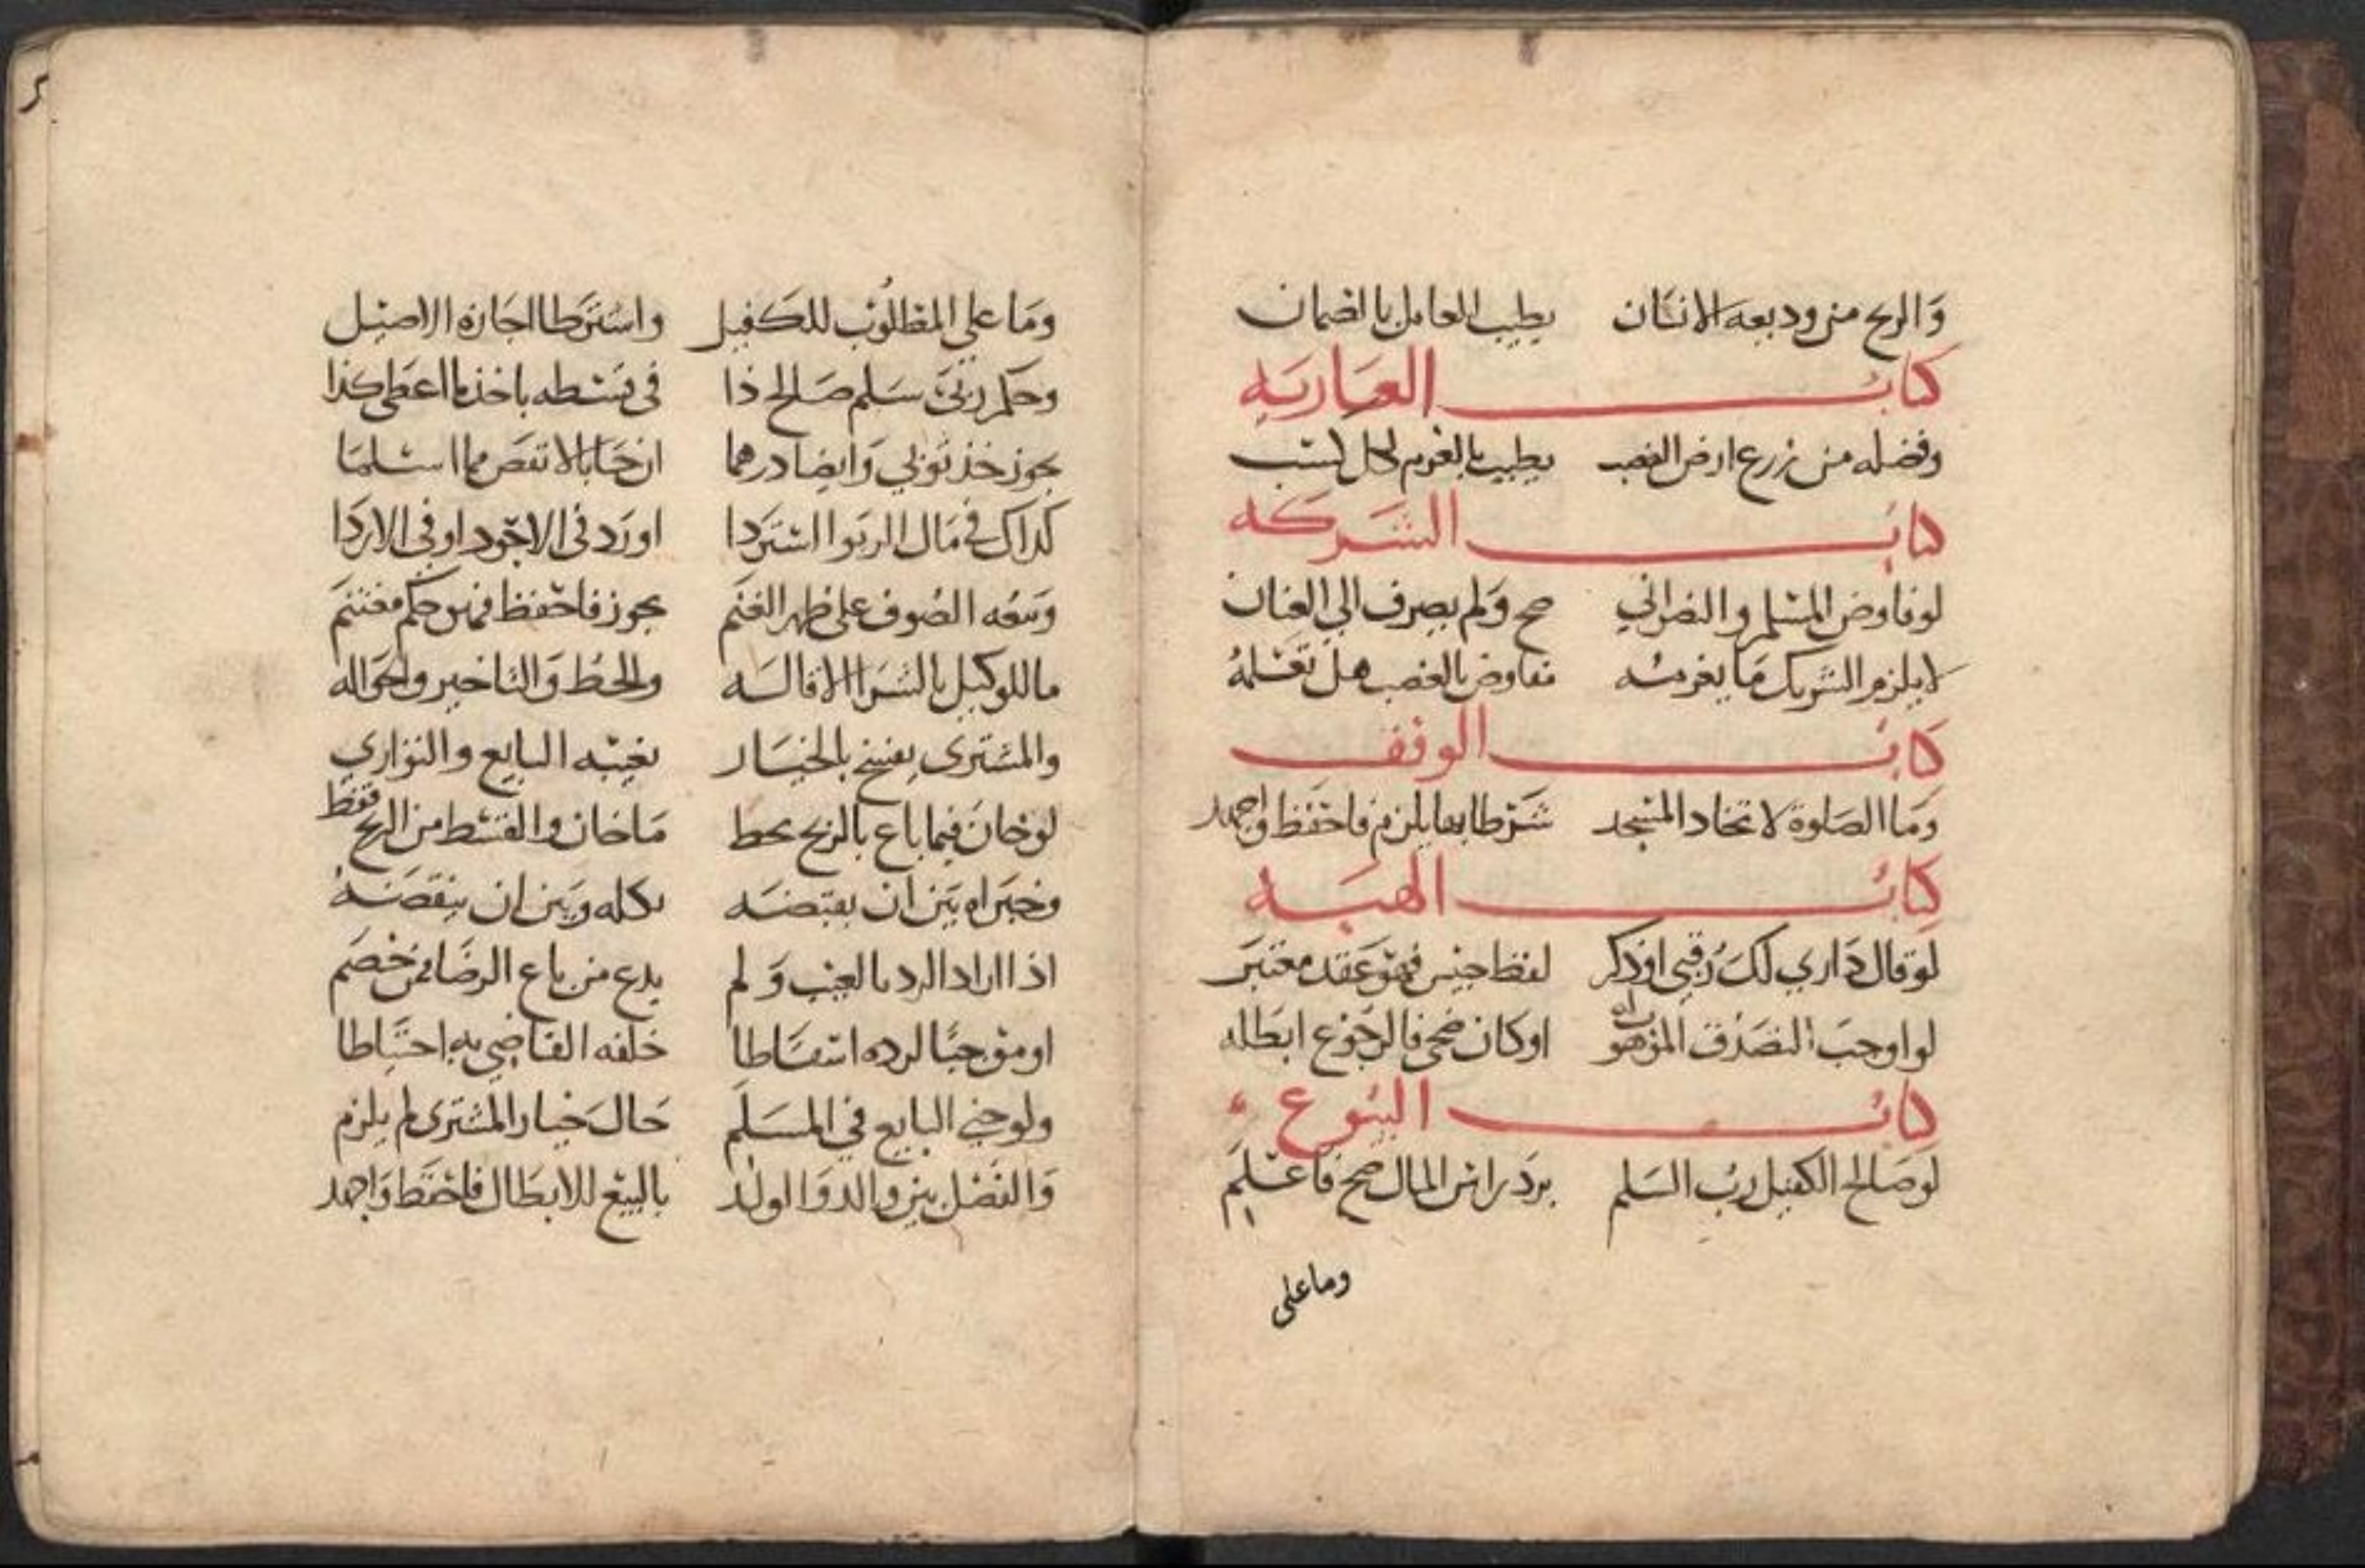 والربح من وديعه الانسان يطيب للعامل بالضمان
كتاب العاريه
وفضله من زرع ارض الغصب يطيب بالغرم لكل كسب
كتاب الشركه
لو فاوض المسلم والنصراني صح ولم يصرف الي العنان
لا يلزم الشريك ما يغرمه مفاوض بالغصب هل تعلمه
كتاب الوقف
وما الصلوة لاتخاد المسجد شرطا بها يلزم فاحفظ واجهد
كتاب الهبه
لو قال داري لك رقبي او ذكر لفظ حبيس فهو عقد معتبر
لو اوجب التصدق الموهوب له او كان ضحى فالرجوع ابطله
كتاب البيوع
لو صالح الكفيل رب السلم برد راس المال صح فاعلم
وما على
وما علي المطلوب للكفيل واشترطا اجازه الاصيل
وحكم ربي سلم صالح ذا في قسطه باخذ ما اعطى كذا
يجوز خذ ثوبي وايضا درهما ان حابا لانقص مما اسلما
كذاك في مال الربوا استردا او رد في الاجود او في الاردا
وبيعه الصوف على ظهر الغنم يجوز فاحفظ فهو حكم مغتنم
ما للوكيل بالشرا الاقاله والحط والتاخير والحواله
والمشتري يفسخ بالخيار بغيبه البايع والتواري
لو خان فيما باع بالربح يحط ما خان والقسط من الربح فقط
وخيراه بين ان يقبضه بكله وبين ان ينقضه
اذا اراد الرد بالعيب ولم يدع من باع الرضا فمن خصم
او موجبا لرده اسقاطا حلفه القاضي به احتياطا
ولو جني البايع في المسلم حال خيار المشتري لم يلزم
والفضل بين والد واولد بالبيع للابطال فاحفظ واجهد